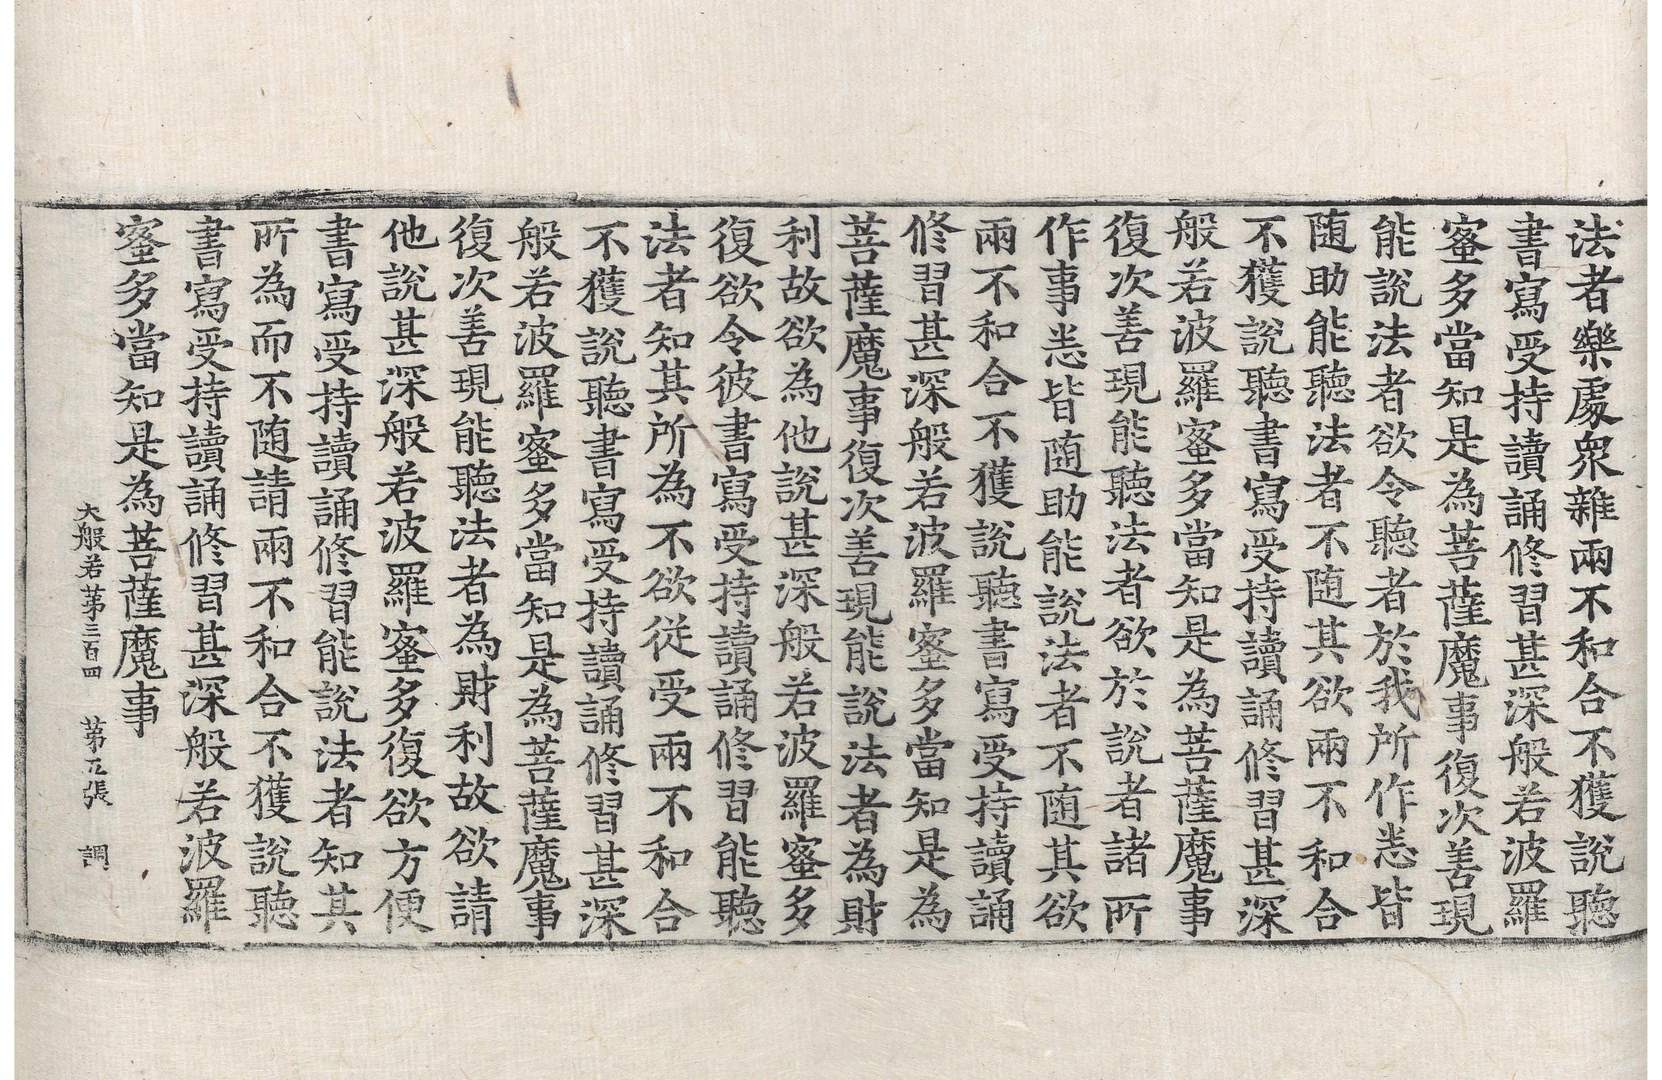 法者樂處衆雜兩不和合不獲說聽
書寫受持讀誦修習甚深般若波羅
蜜多當知是為菩薩魔事復次善現
能說法者欲令聽者於我所作恙皆
随助能聽法者不随其欲兩不和合
不獲說聽書寫受持讀誦修習甚深
般若波羅蜜多當知是為菩薩魔事
復次善現能聽法者欲於說者諸所
作事恙皆随助能說法者不随其欲
兩不和合不獲說聽書寫受持讀誦
修習甚深般若波羅蜜多當知是為
菩薩魔事復次善現能說法者為財
利故欲為他說甚深般若波羅蜜多
復欲令彼書寫受持讀誦修習能聽
法者知其所為不欲従受兩不和合
不獲說聽書寫受持讀誦修習甚深
般若波羅蜜多當知是為菩薩魔事
復次善現能聽法者為財利故欲請
他說甚深般若波羅蜜多復欲方便
書寫受持讀誦修習能說法者知其
所為而不随請兩不和合不獲說聽
書寫受持讀誦修習甚深般若波羅
蜜多當知是為菩薩魔事
大般若苐三百四 苐五張 調